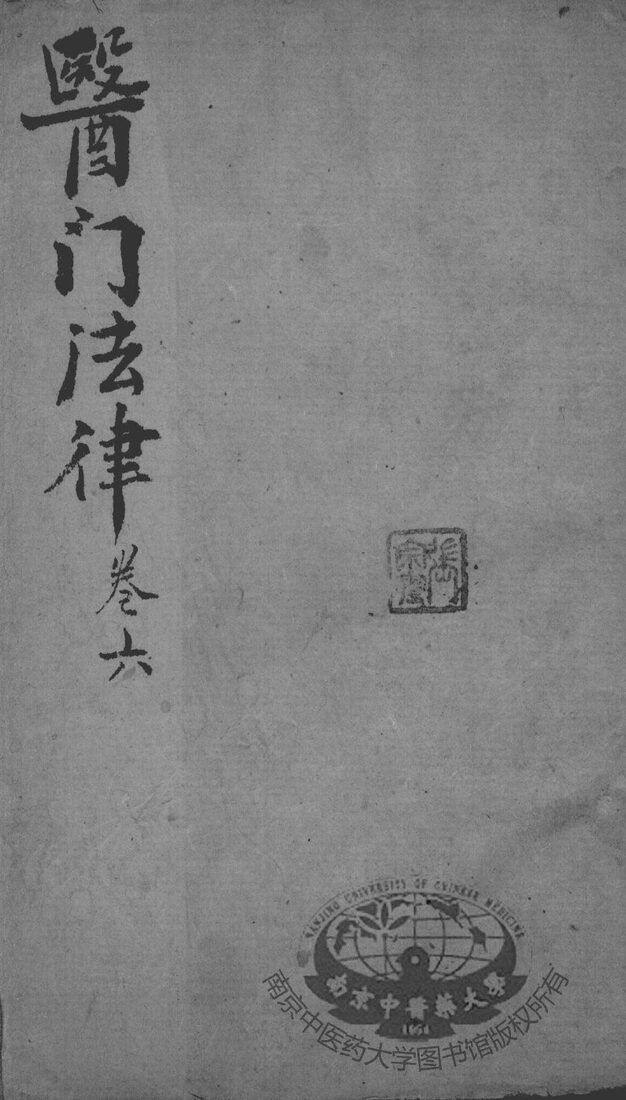 醫门法律
卷六
NANJING UNIVERSITY OF CHINESE MEDICINE
南京中醫藥大學
南京中医药大学图书馆版权所有